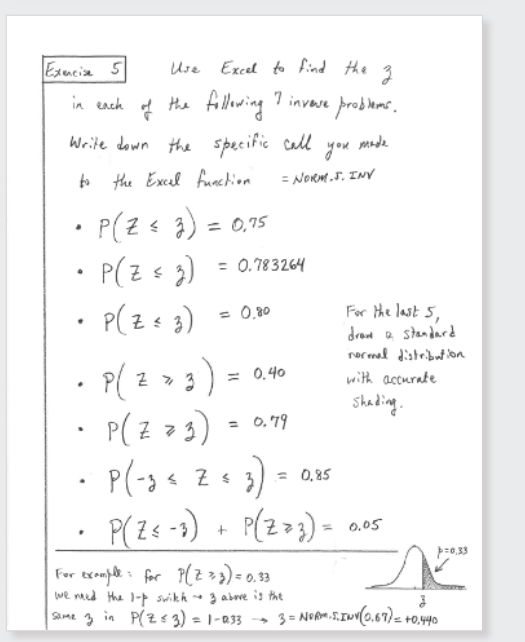 Exercise 5 Use Excel to find the z
in each of the following 7 inverse problems.
Write down the specific call you made
to the Excel function = NORM.S.INV
• P(Z ≤ z) = 0.75
• P(Z ≤ z) = 0.783264
• P(Z ≤ z) = 0.80
For the last 5,
draw a standard
normal distribution
with accurate
shading.
• P(Z ≥ z) = 0.40
• P(Z ≥ z) = 0.79
• P(-z ≤ Z ≤ z) = 0.85
• P(Z ≤ -z) + P(Z ≥ z) = 0.05
For example: for P(Z ≥ z) = 0.33
we need the 1-p switch → z above is the
same z in P(Z ≤ z) = 1-0.33 → z = NORM.S.INV(0.67) = +0.440
p=0.33
z